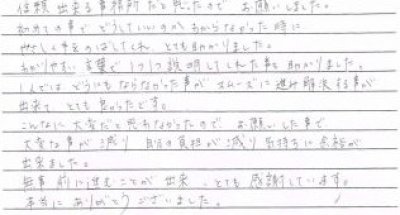 信頼出来る事務所だと思ったので お願いしました。
初めての事で どうしていいのか わからなかった時に
やさしく手をのばしてくれ とても助かりました。
わかりやすい言葉で 1つ1つ説明してくれた事も 助かりました。
1人ではどうにもならなかった事が スムーズに進み解決する事が
出来て とても良かったです。
こんなに大変だと思わなかったので お願いした事で
大変な事が減り 自身の負担が減り気持ちに余裕が
出来ました。
無事前に進むことが出来、とても感謝しています。
本当にありがとうございました。